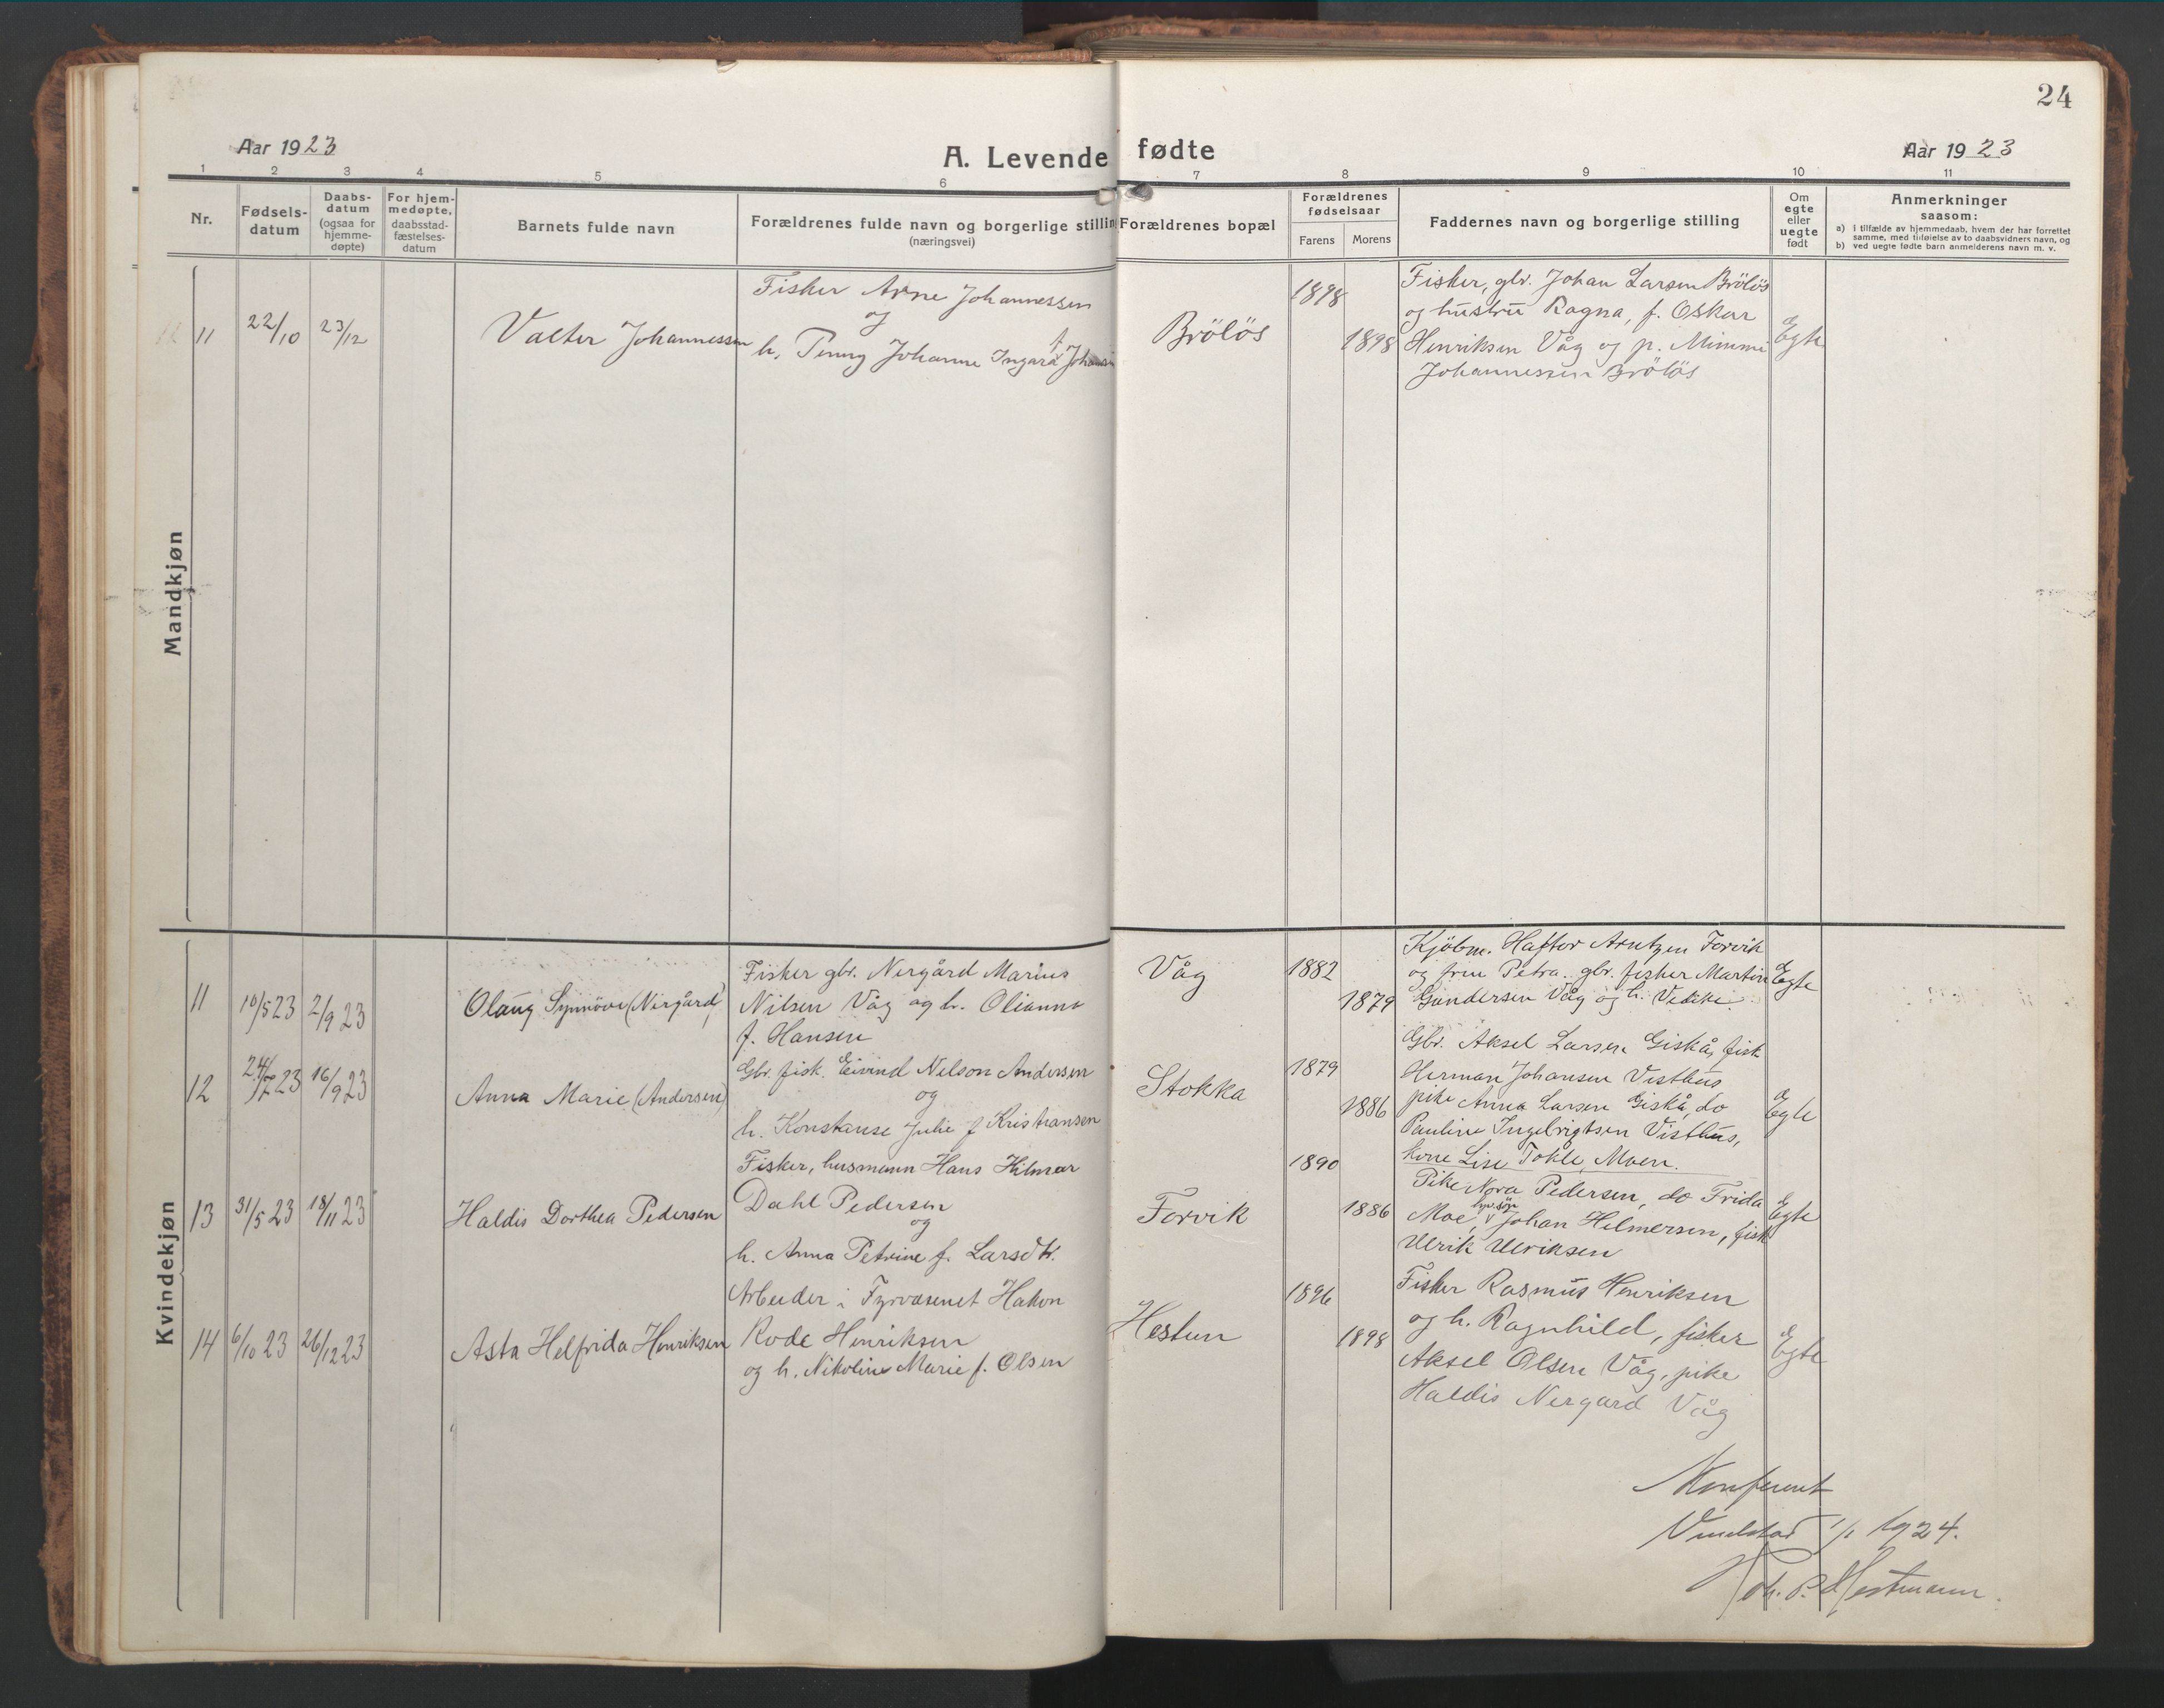 24
Aar 1923
A. Levende fødte
Aar 1923
1 2 3 4 5 6 7 8 9 10 11
Nr.
Fødsels-
datum
Daabs-
datum
(ogsaa for
hjemme-
døpte)
For hjem-
medøpte,
daabsstad-
fæstelses-
datum
Barnets fulde navn
Forældrenes fulde navn og borgerlige stilling
(næringsvei)
Forældrenes bopæl
Forældrenes
fødselsaar
Farens Morens
Faddernes navn og borgerlige stilling
Om
egte
eller
uegte
født
Anmerkninger
saasom:
a) i tilfælde av hjemmedaab, hvem der har forrettet
samme, med tilføielse av to daabsvidners navn, og
b) ved uegte fødte barn anmelderens navn m. v.
Mandkjøn
11
22/10
23/12
Valter Johannessen
Fisker Arne Johannessen
og
h. Penny Johanne Ingard f. Johansen
Brölös
1898
1898
Fisker, gbr. Johan Larsen Brölös
og hustru Ragna, f. Oskar
Henriksen Våg og p. Mimmi
Johannessen Brölös
Egte
Kvindekjøn
11
10/5 23
2/9 23
Olaug Synnöve (Nergård)
Fisker gbr. Nergård Marius
Nilsen Våg og h. Olianna
f. Hansen
Våg
1882
1879
Kjöbm. Haftor Arntzen Forvik
og frue Petra. gbr. fisker Martin
Gundersen Våg og h. Vekke.
Egte
12
24/7 23
16/9 23
Anna Marie (Andersen)
Gbr. fisk. Eivind Nelson Andersen
og
h. Konstanse Julie f Kristiansen
Stokka
1879
1886
Gbr. Aksel Larsen Giskå, fisk
Herman Johansen Visthus
pike Anna Larsen Giskå, do
Pauline Ingebrigtsen Visthus,
kone Lise Tokle, Moen.
Egte
13
31/5 23
18/11 23
Haldis Dorthea Pedersen
Fisker, husmann Hans Hilmar
Dahl Pedersen
og
h. Anna Petrine f. Larsdtr.
Forvik
1890
1886
Pike Nora Pedersen, do Frida
Moe, Johan Hilmersen, fisk
Ulrik Ulriksen
Egte
14
6/10 23
26/12 23
Asta Helfrida Henriksen
Arbeider i Fyrvæsenet Hakon
Rode Henriksen
og h. Nikoline Marie f. Olsen
Hestun
1896
1898
Fisker Rasmus Henriksen
og h. Ragnhild, fisker
Aksel Olsen Våg, pike
Haldis Nergard Våg
Egte
Konferert
1/1 1924.
Joh. P. Hestmann.